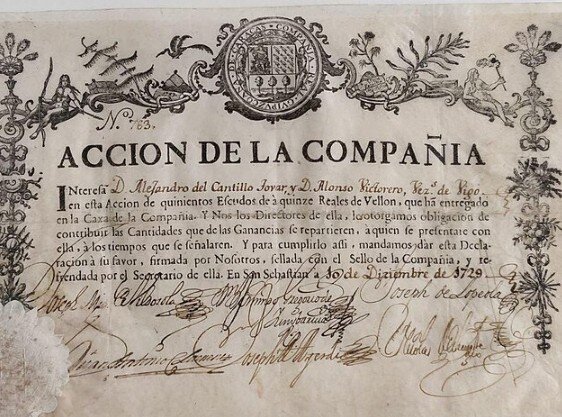 N.º 783.
ACCION DE LA COMPAÑIA
INteresa D. Alejandro del Cantillo Jovar y D. Alonso Victorero, Vez.ˢ de Vigo
en esta Accion de quinientos Escudos de à quinze Reales de Vellon, que hà entregado
en la Caxa de la Compañia. Y Nos los Directores de ella, le otorgamos obligacion de
contribuir las Cantidades que de las Ganancias se repartieren, à quien se presentare con
ella, à los tiempos que se señalaren. Y para cumplirlo assi, mandamos dar esta Decla-
racion à su favor, firmada por Nosotros, sellada con el Sello de la Compañia, y re-
frendada por el Secretario de ella. En San Sebastian à 10 de Diziembre de 1729
Joseph de Lopeola